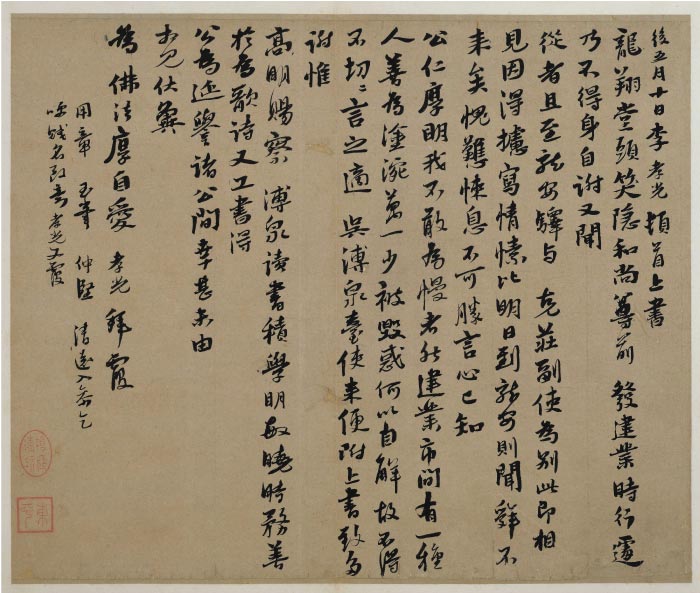 後五月十日李孝光頓首上書
龍翔堂頭笑隱和尚尊前 發建業時行遽
乃不得身自謝又聞
從者且至龍安驛與 克莊副使為別此即相
見因得攄寫情愫比明日到龍安則聞舜不
来矣愧難悚息不可勝言心已知
公仁厚明我不敢為慢者然建業市間有一種
人善為塗涴萬一少被毀惑何以自解故不得
不切〻言之適 吳溥泉臺使来便附上書致多
謝惟
高明賜察 溥泉讀書積學明敏曉時務善
於為歌詩又工書得
公為延譽諸公間幸甚未由
占見伏冀
為佛法厚自愛 孝光拜覆
用章 玉章 仲堅 清遠入參乞
呼賤名致意孝光又覆